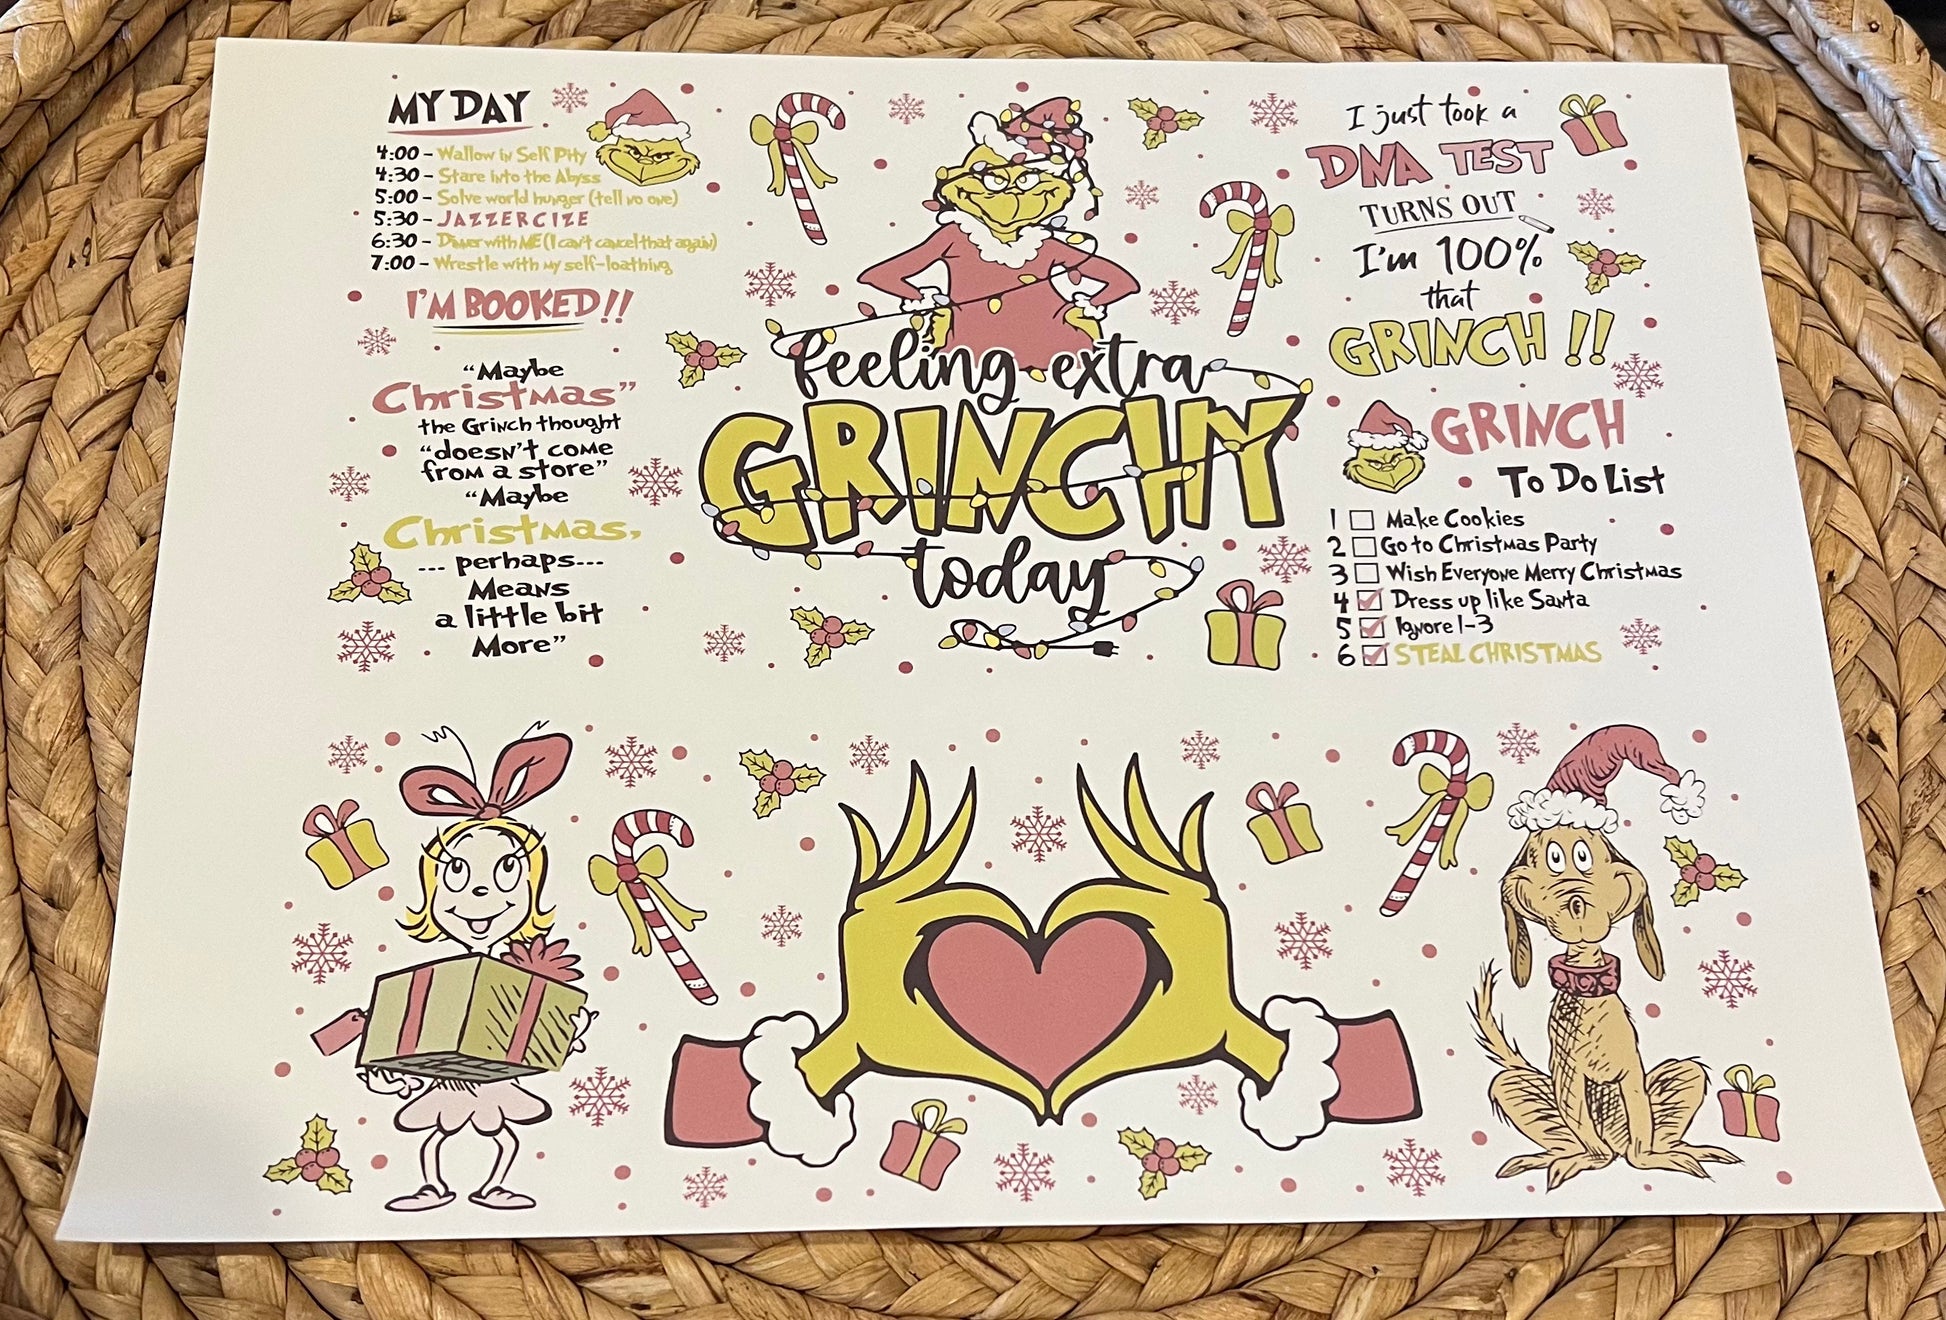 MY DAY
4:00 - Wallow in Self Pity
4:30 - Stare into the Abyss
5:00 - Solve world hunger (tell no one)
5:30 - JAZZERCIZE
6:30 - Dinner with ME (I can't cancel that again)
7:00 - Wrestle with my self-loathing
I'M BOOKED!!
"Maybe
Christmas"
the Grinch thought
"doesn't come
from a store"
"Maybe
Christmas,
... perhaps...
Means
a little bit
More"
feeling extra
GRINCHY
today
I just took a
DNA TEST
TURNS OUT
I'm 100%
that
GRINCH!!
GRINCH
To Do List
1 Make Cookies
2 Go to Christmas Party
3 Wish Everyone Merry Christmas
4 Dress up like Santa
5 Ignore 1-3
6 STEAL CHRISTMAS